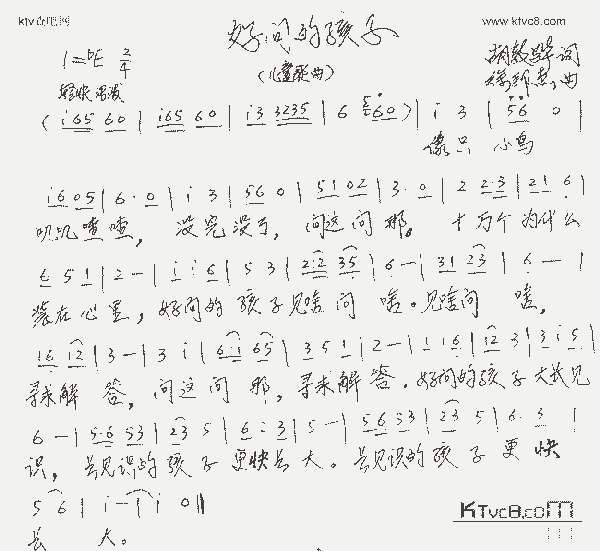 ktv歌吧网 www.ktvc8.com
好问的孩子
(儿童歌曲)
1=bE 2/4
词
轻快 活泼 曲
( i65 60 | i65 60 | i3 3235 | 6 60 ) | i 3 | 56 0 |
像只 小鸟
i605 | 6·0 | i 3 | 56 0 | 5102 | 3·0 | 2 2·3 | 21 6 |
叽叽喳喳，没完没了，问这问那。十万个为什么
6 51 | 2 - | i i6 | 5 3 | 2·2 35 | 6 - | 31 23 | 6 - |
装在心里，好问的孩子见啥问啥。见啥问啥，
16 12 | 3 - | 3 i | 6·i 65 | 3 51 | 2 - | 1 16 | 12 3 | 3 i5 |
寻求解答，问这问那，寻求解答。好问的孩子大长见
6 - | 5·6 53 | 23 5 | 6·3 | 5 - | 56 53 | 23 5 | 6·3 |
识，长见识的孩子更快长大。长见识的孩子更快
5 6 | i - | i 0 ||
长大。
KTvc8.com